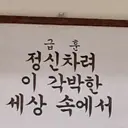 급훈
정신차려
이 각박한
세상 속에서